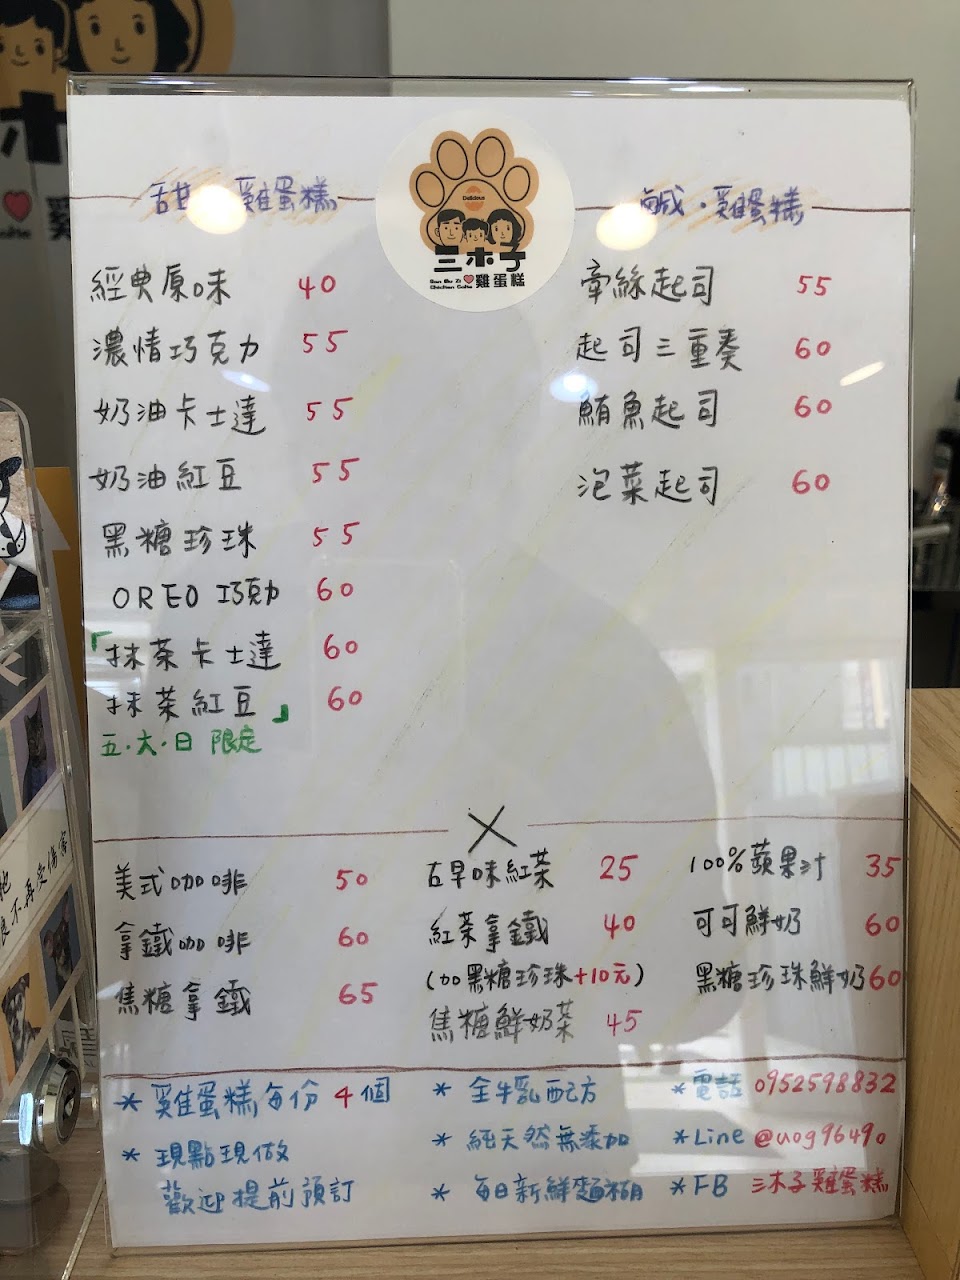 甜 雞蛋糕
Delicious
三木子
San Mu Zi
Chicken Cake
雞蛋糕
鹹・雞蛋糕
經典原味 40
濃情巧克力 55
奶油卡士達 55
奶油紅豆 55
黑糖珍珠 55
OREO 巧克力 60
「抹茶卡士達 60
抹茶紅豆」 60
五.六.日 限定
牽絲起司 55
起司三重奏 60
鮪魚起司 60
泡菜起司 60
美式咖啡 50
拿鐵咖啡 60
焦糖拿鐵 65
古早味紅茶 25
紅茶拿鐵 40
(加黑糖珍珠+10元)
焦糖鮮奶茶 45
100%蘋果汁 35
可可鮮奶 60
黑糖珍珠鮮奶 60
* 雞蛋糕每份 4 個
* 現點現做
歡迎提前預訂
* 全牛乳配方
* 純天然無添加
* 每日新鮮麵糊
* 電話 0952598832
* Line @uog9649o
* FB 三木子雞蛋糕
不再受傷害